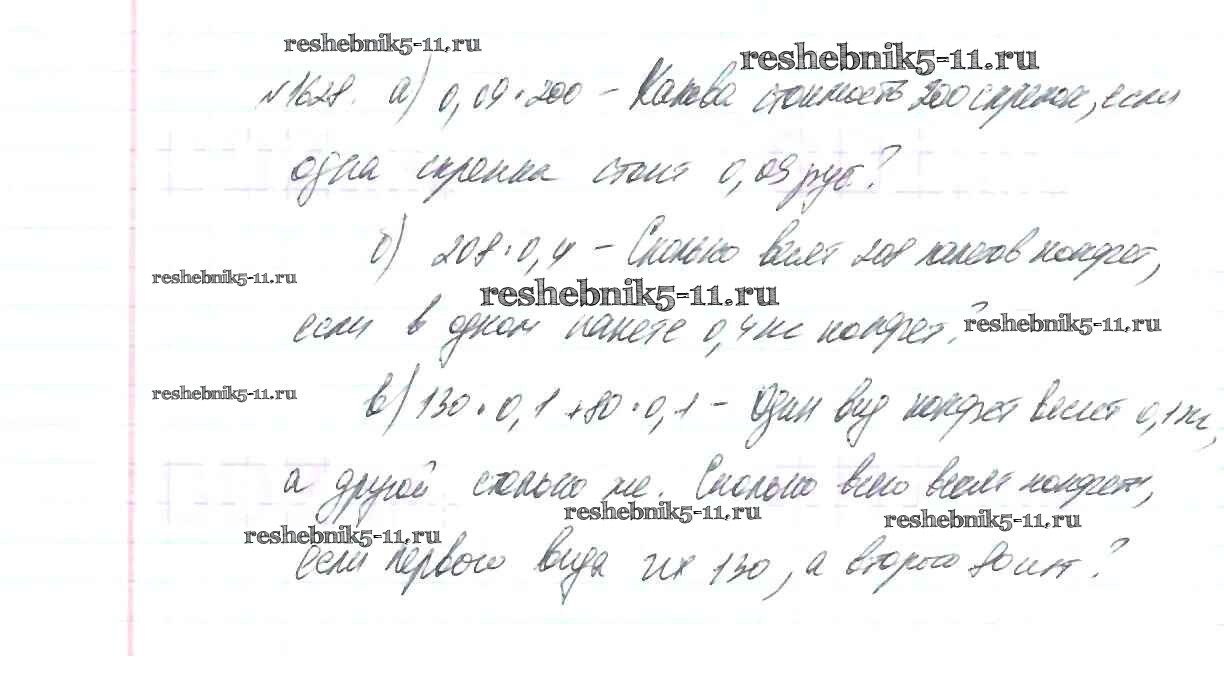 reshebnik5-11.ru
reshebnik5-11.ru
№1628. а) 0,09·200 – Какова стоимость 200 скрепок, если
одна скрепка стоит 0,09 руб?
б) 208·0,4 – Сколько весят 208 пакетов конфет,
reshebnik5-11.ru
reshebnik5-11.ru
если в одном пакете 0,4 кг конфет?
reshebnik5-11.ru
reshebnik5-11.ru
в) 130·0,1+80·0,1 – Один вид конфет весит 0,1 кг,
а другой столько же. Сколько всего весят конфеты,
reshebnik5-11.ru
reshebnik5-11.ru
reshebnik5-11.ru
если первого вида их 130, а второго 80 шт?